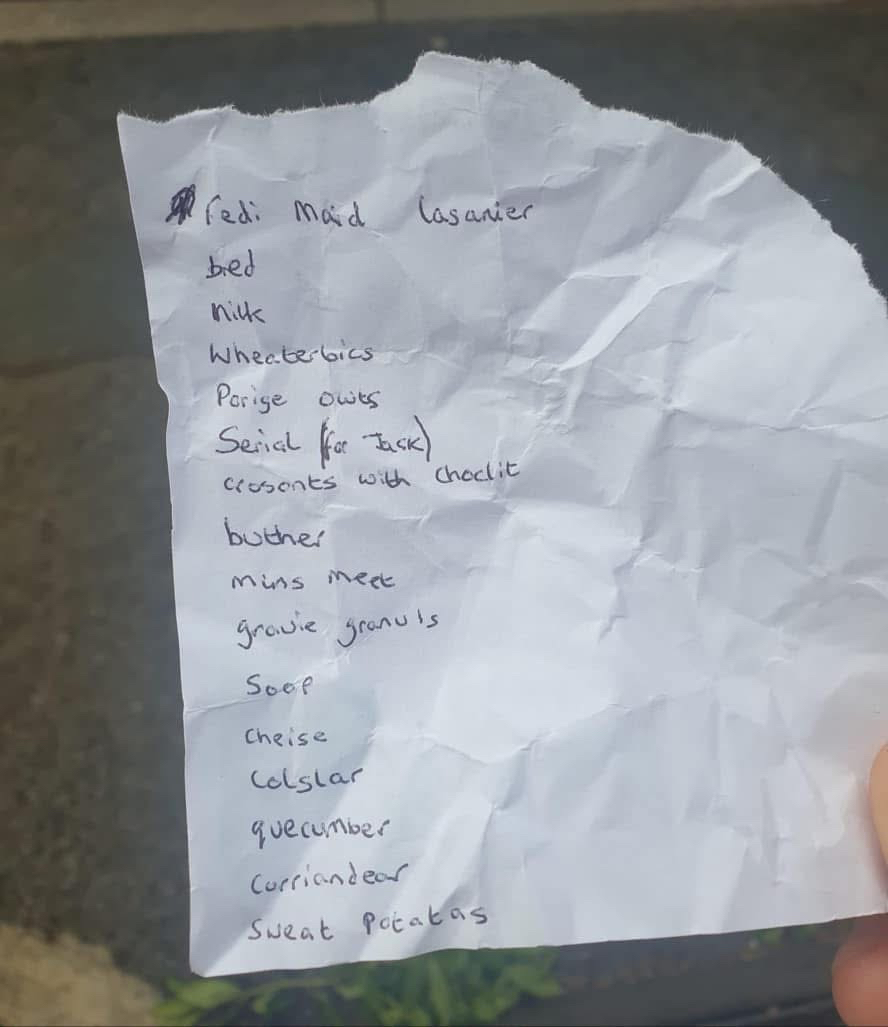 redi maid lasanier
bred
milk
wheaterbics
Porige owts
Serial (for Jack)
crosonts with choclit
buther
mins meet
gravie granuls
Soop
cheise
Colslar
quecumber
Curriandear
Sweat Potatas